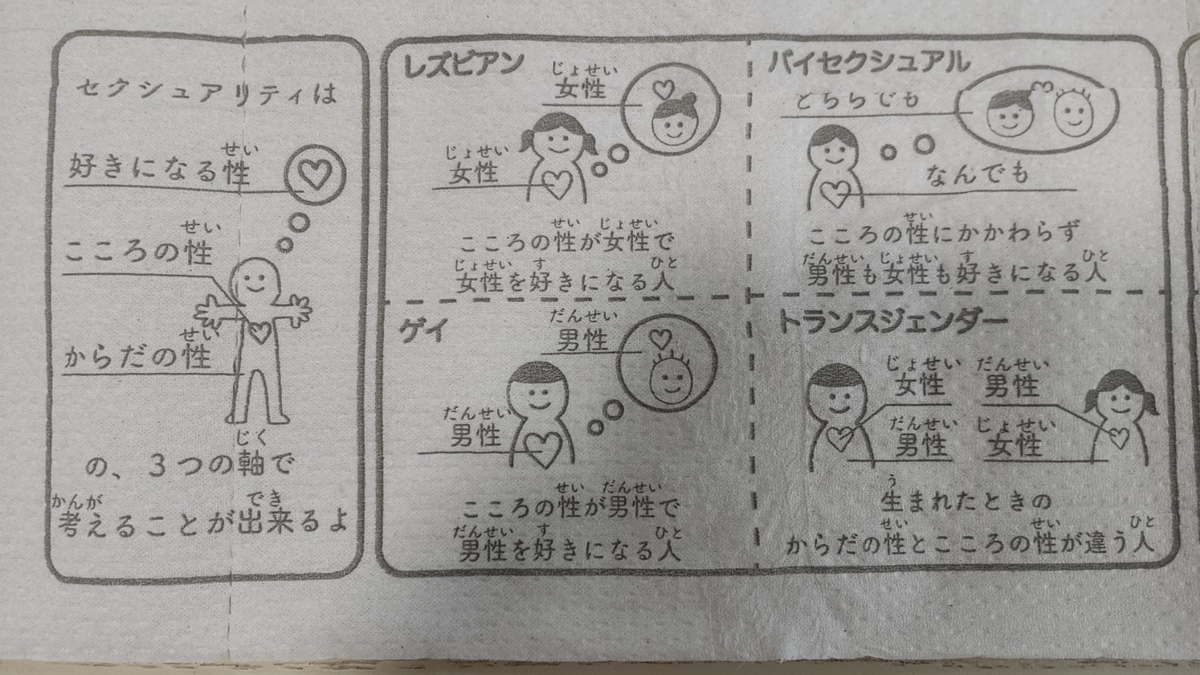 セクシュアリティは
好きになる性
せい
こころの性
せい
からだの性
せい
の、3つの軸で
じく
考えることが出来るよ
かんが
でき
レズビアン
じょせい
女性
じょせい
女性
せい じょせい
こころの性が女性で
じょせい す ひと
女性を好きになる人
バイセクシュアル
どちらでも
なんでも
せい
こころの性にかかわらず
だんせい じょせい す ひと
男性も女性も好きになる人
ゲイ
だんせい
男性
だんせい
男性
せい だんせい
こころの性が男性で
だんせい す ひと
男性を好きになる人
トランスジェンダー
じょせい だんせい
女性 男性
だんせい じょせい
男性 女性
う
生まれたときの
せい せい ひと
からだの性とこころの性が違う人